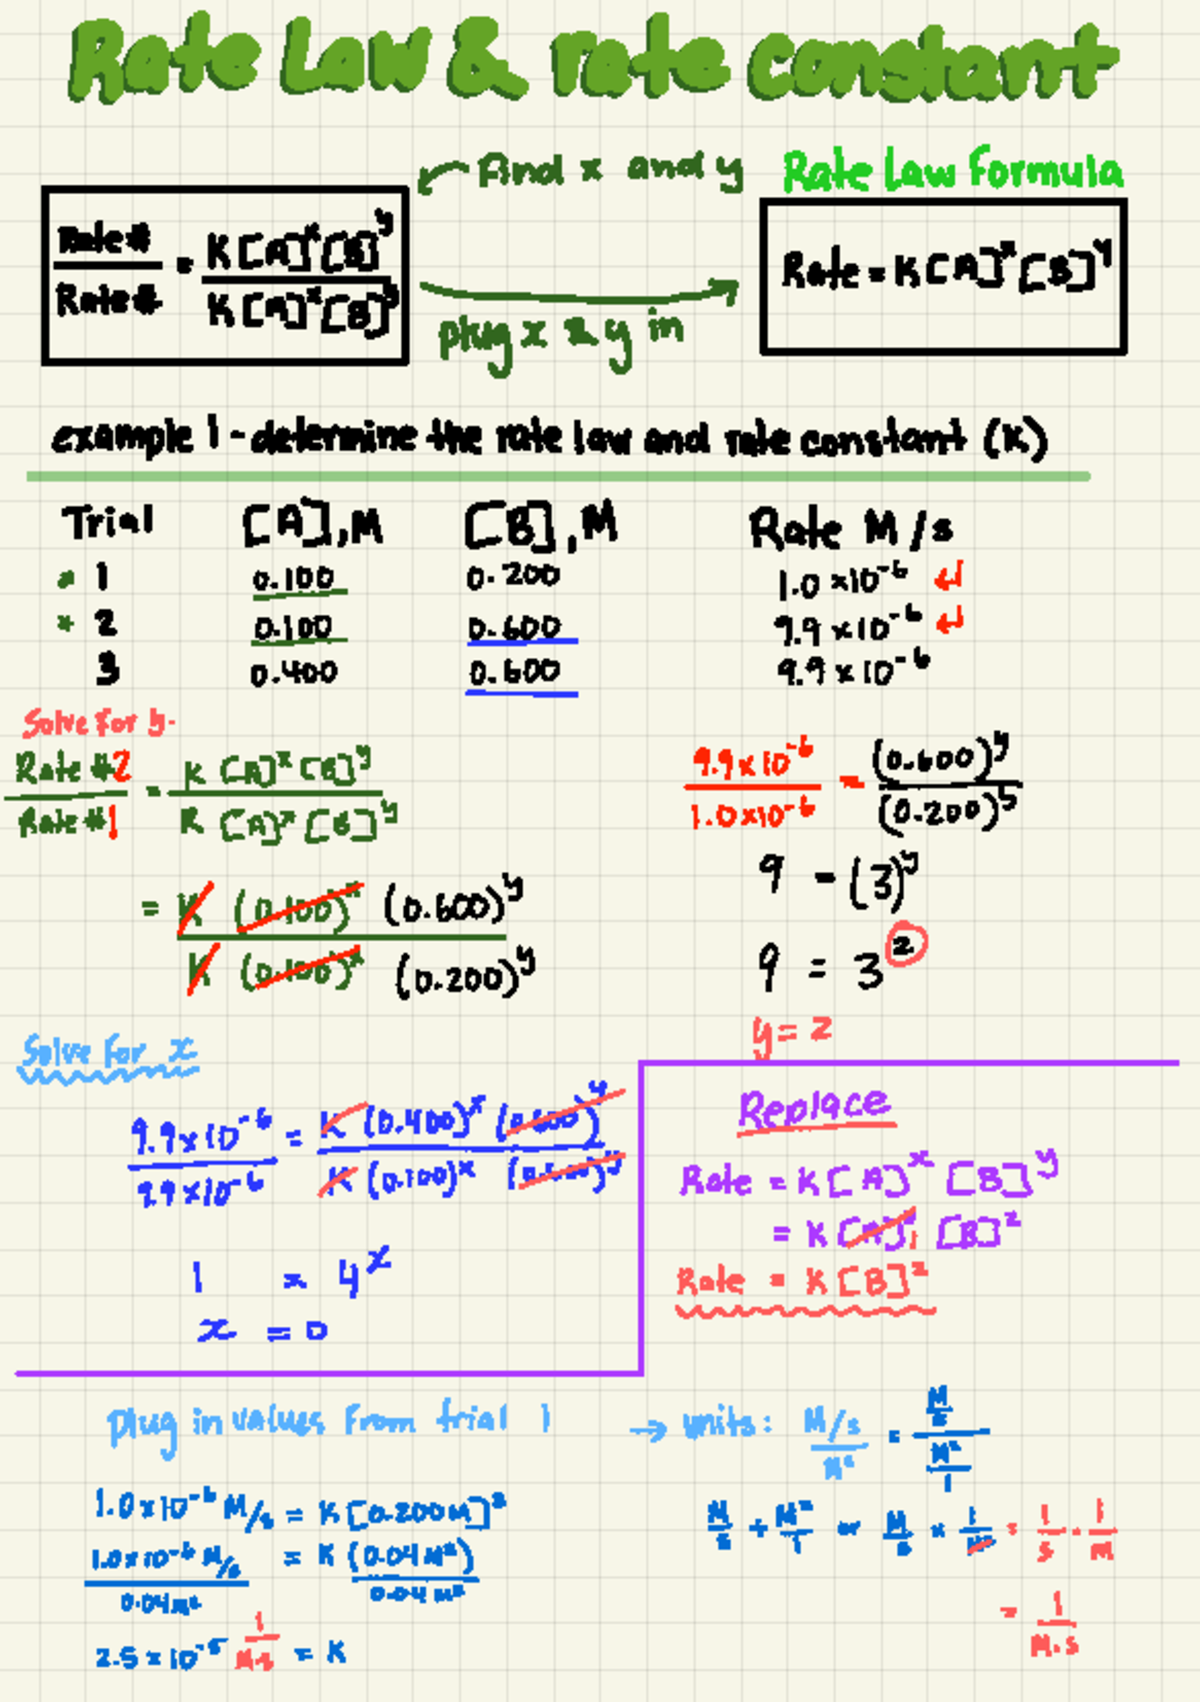 Rate Law & rate constant
find x and y
Rate Law Formula
Rate# / Rate# = K[A]^x[B]^y / K[A]^x[B]^y
plug x & y in
Rate = K[A]^x[B]^y
example 1 - determine the rate law and rate constant (K)
Trial [A],M [B],M Rate M/s
* 1 0.100 0.200 1.0 x10^-6 ↵
* 2 0.100 0.600 9.9 x10^-6 ↵
3 0.400 0.600 9.9 x 10^-6
Solve for y.
Rate #2 / Rate #1 = K [A]^x [B]^y / K [A]^x [B]^y
= K (0.100)^x (0.600)^y / K (0.100)^x (0.200)^y
9.9x10^-6 / 1.0x10^-6 = (0.600)^y / (0.200)^y
9 = (3)^y
9 = 3^2
y = 2
Solve for x
9.9x10^-6 / 9.9x10^-6 = K (0.400)^x (0.600)^y / K (0.100)^x (0.600)^y
1 = 4^x
x = 0
Replace
Rate = K[A]^x [B]^y
= K[A]^0 1 [B]^2
Rate = K[B]^2
Plug in values from trial 1
1.0x10^-6 M/s = K [0.200M]^2
1.0x10^-6 M/s / 0.04M^2 = K (0.04 M^2) / 0.04 M^2
2.5 x 10^-5 1/M.s = K
→ units: M/s / M^2 = M/s / M^2/1
M/s ÷ M^2/1 or M/s x 1/M^2 = 1/s · 1/M
= 1/M.s